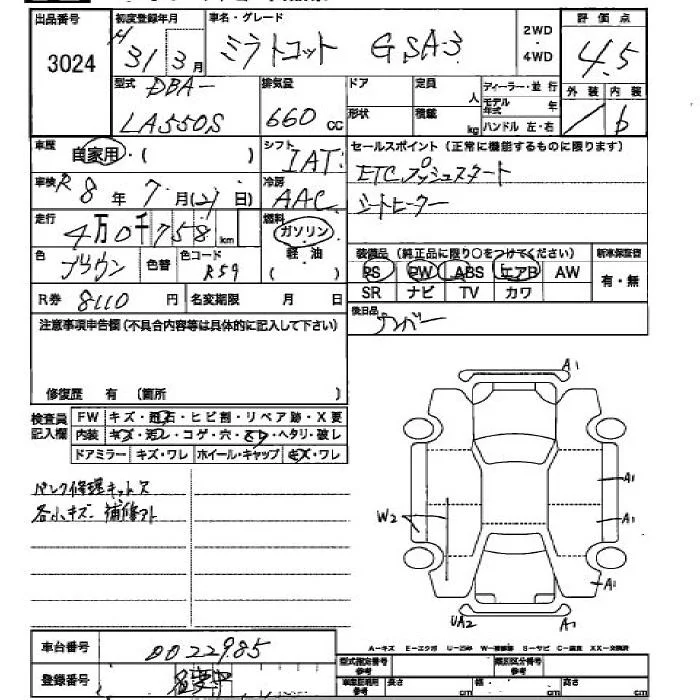 出品番号
3024
初度登録年月
H 31年 3月
車名・グレード
ミラトコット GSA3
2WD
・
4WD
評価点
4.5
外装 内装
b
型式
DBA-
LA550S
排気量
660 cc
ドア
形状
定員 人
積載 kg
ディーラー・並 行
モデル年式 年
ハンドル 左・右
車歴
自家用・( )
シフト
IAT
セールスポイント (正常に機能するものに限ります)
ETC プッシュスタート
シートヒーター
車検 R 8 年 7 月 (21 日)
冷房
AAC
走行
4万0千758 km
燃料
ガソリン
軽 油
色
ブラウン
色替
色コード
R59
装備品 (純正品に限り○をつけてください)
PS PW ABS エアB AW
SR ナビ TV カワ
新車保証書
有・無
R券 8110 円
名変期限 月 日
後日品
ナンバー
注意事項申告欄 (不具合内容等は具体的に記入して下さい)
修復歴 有 (箇所 )
検査員
記入欄
FW キズ・飛石・ヒビ割・リペア跡・X要
内装 キズ・汚レ・コゲ・穴・ヘタリ・破レ
ドアミラー キズ・ワレ ホイール・キャップ キズ・ワレ
パンク修理キット欠
各小キズ 補修アト
A1
A1
A1
W2
A1
UA2
A1
車台番号
0022985
登録番号
A-キズ E-エクボ W-補修跡 S-サビ C-腐食 XX-交換済
型式指定番号
参考
類別区分番号
参考
長さ cm
幅 cm
高さ cm